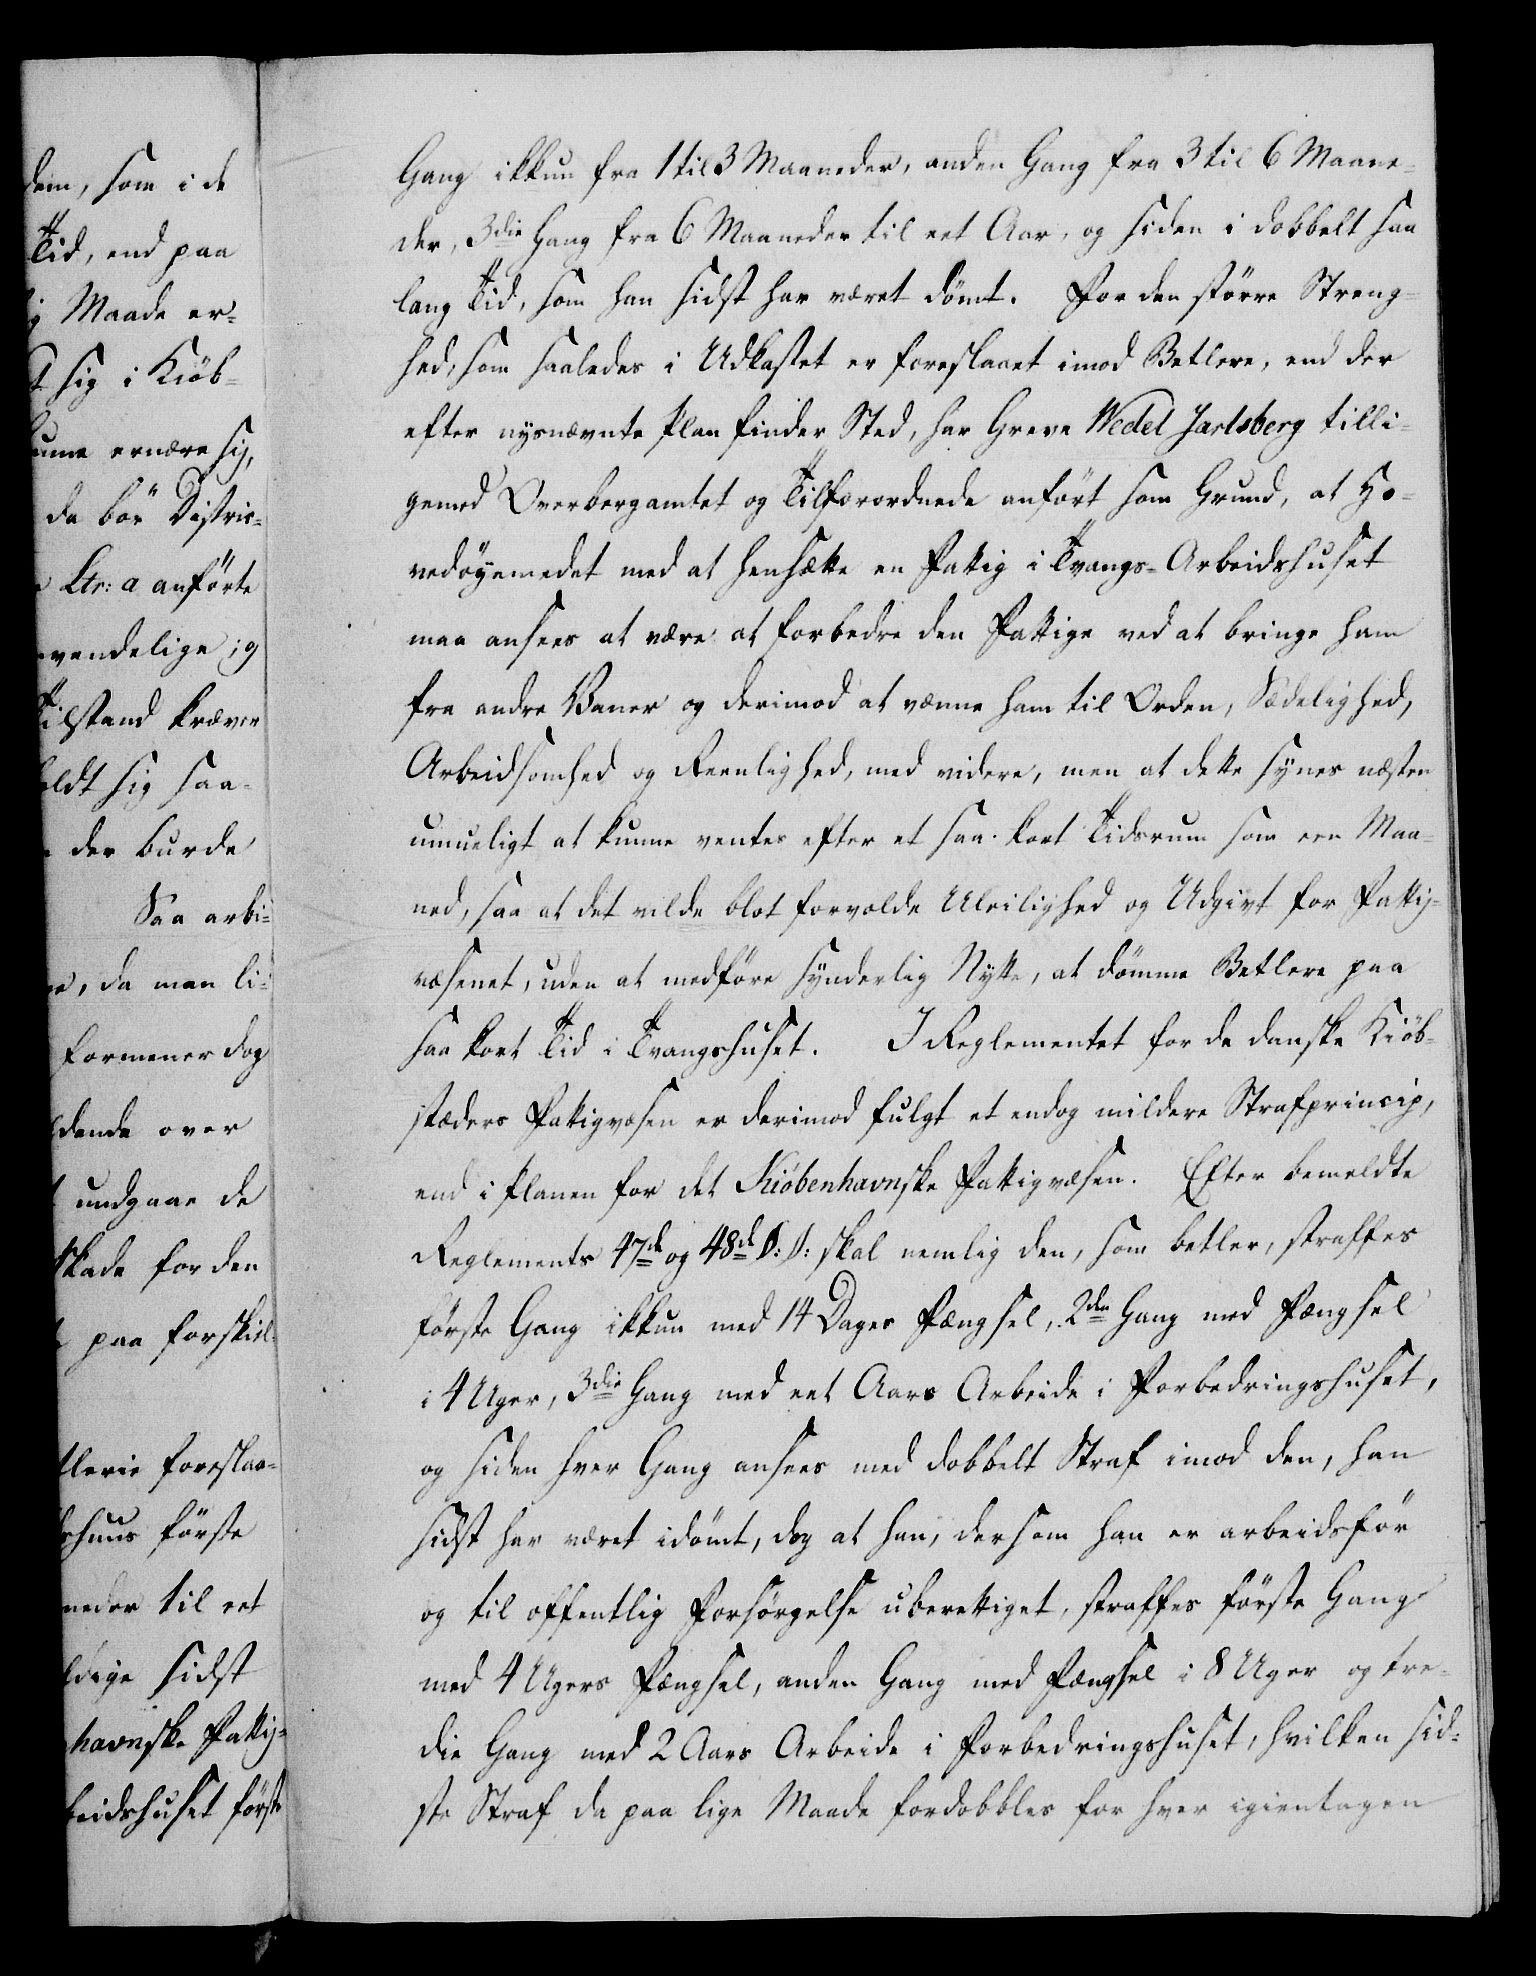 dem, som i de
Tid, end paa
Maade er-
sig i Kiöb-
ernære sig,
da bör Distric-
Ltr: a anförte
vendelige; og
Tilstand kræver
sig saa-
der burde
Saa arbi-
da man li-
formener dog
over
undgaae de
Skade for den
paa forskiel-
foreslaa-
huus förste
neder til eet
sidst
havnske Fattig-
beidshuset förste
Gang ikkun fra 1 til 3 Maaneder, anden Gang fra 3 til 6 Maane-
der, 3die Gang fra 6 Maaneder til eet Aar, og siden i dobbelt saa
lang Tid, som han sidst har været dömt. For den större Streng-
hed, som saaledes i Udkastet er foreslaaet imod Betlere, end der
efter nysnævnte Plan finder Sted, har Greve Wedel Jarlsberg tilli-
gemed Overbergamtet og Tilforordnede anfört som Grund, at Ho-
vedöyemedet med at hensætte en Fattig i Tvangs-Arbeidshuset
maa ansees at være at forbedre den Fattige ved at bringe ham
fra andre Vaner og derimod at vænne ham til Orden, Sædelighed,
Arbeidsomhed og Reenlighed, med videre, men at dette synes næsten
umueligt at kunne ventes efter et saa kort Tidsrum som een Maa-
ned, saa at det vilde blot forvolde Uleilighed og Udgivt for Fattig-
væsenet, uden at medföre synderlig Nytte, at dömme Betlere paa
saa kort Tid i Tvangshuset. I Reglementet for de danske Kiöb-
stæders Fattigvæsen er derimod fulgt et endog mildere Strafprincip,
end i Planen for det Kiöbenhavnske Fattigvæsen. Efter bemeldte
Reglements 47de og 48de §: §: skal nemlig den, som betler, straffes
förste Gang ikkun med 14 Dages Fængsel, 2den Gang med Fængsel
i 4 Uger, 3die Gang med eet Aars Arbeide i Forbedringshuset,
og siden hver Gang ansees med dobbelt Straf imod den, han
sidst har været idömt, dog at han, dersom han er arbeidsför
og til offentlig Forsörgelse uberettiget, straffes förste Gang
med 4 Ugers Fængsel, anden Gang med Fængsel i 8 Uger og tre-
die Gang med 2 Aars Arbeide i Forbedringshuset, hvilken sid-
ste Straf da paa lige Maade fordobbles for hver igientagen